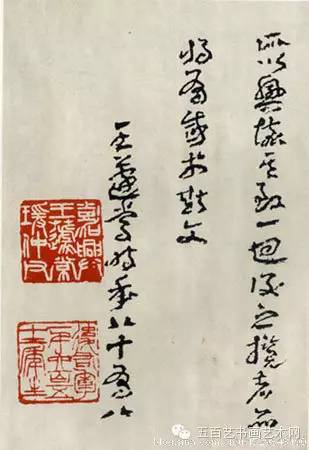 所以興懷其致一也後之攬者亦
將有感於斯文
王蘧常時年八十有八
嘉興王蘧常瑗仲父
五百艺书画艺术网